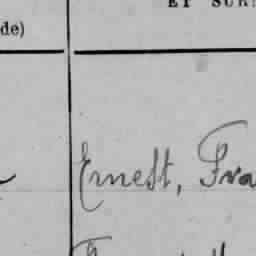 ET SUR
de)
Ernest, Fra